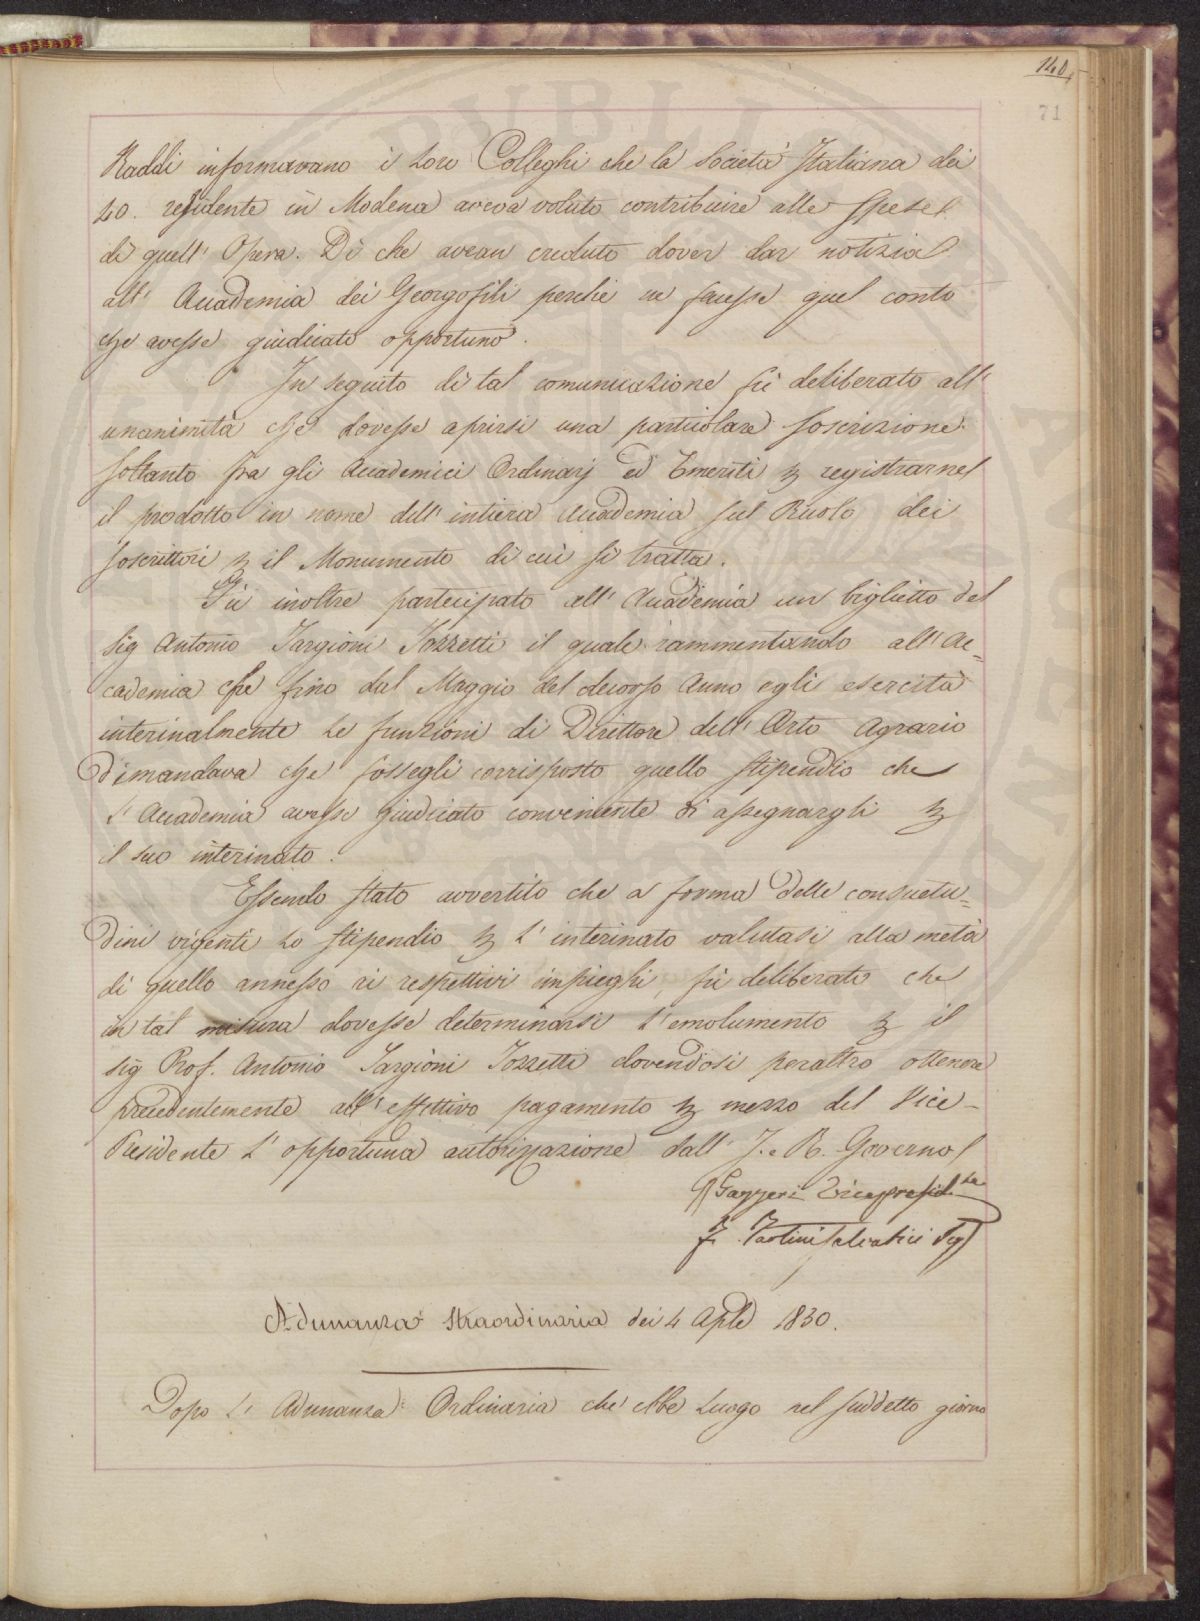 140
71
Raddi informavano i loro Colleghi che la Società Italiana dei
40. residente in Modena aveva voluto contribuire alle spese
di quell' Opera. Di che avean creduto dover dar notizia
all' Accademia dei Georgofili perchè ne facesse quel conto
che avesse giudicato opportuno.
In seguito di tal comunicazione fù deliberato all'
unanimità che dovesse aprirsi una particolare soscrizione
soltanto fra gli Accademici Ordinarj ed Emeriti p registrarne
il prodotto in nome dell' intiera Accademia sul Ruolo dei
soscrittori p il Monumento di cui si tratta.
Fù inoltre partecipato all' Accademia un biglietto del
Sig Antonio Targioni Tozzetti il quale rammentando all' Ac=
cademia che fino dal Maggio del decorso Anno egli esercita
interinalmente le funzioni di Direttore dell' Orto Agrario
dimandava che fossegli corrisposto quello stipendio che
l' Accademia avesse giudicato conveniente di assegnargli p
il suo interinato.
Essendo stato avvertito che a forma delle consuetu=
dini vigenti lo stipendio p l' interinato valutasi alla metà
di quello annesso ai respettivi impieghi, fù deliberato che
in tal misura dovesse determinarsi l' emolumento p il
Sig Prof. Antonio Targioni Tozzetti dovendosi peraltro ottenere
precedentemente all' effettivo pagamento p mezzo del Vice-
Presidente l' opportuna autorizzazione dall' I. e R. Governo
G Gazzeri Vicepresid.te
F. Paolini Seg
Adunanza straordinaria dei 4 Aple 1830.
Dopo l' Adunanza Ordinaria che ebbe luogo nel suddetto giorno